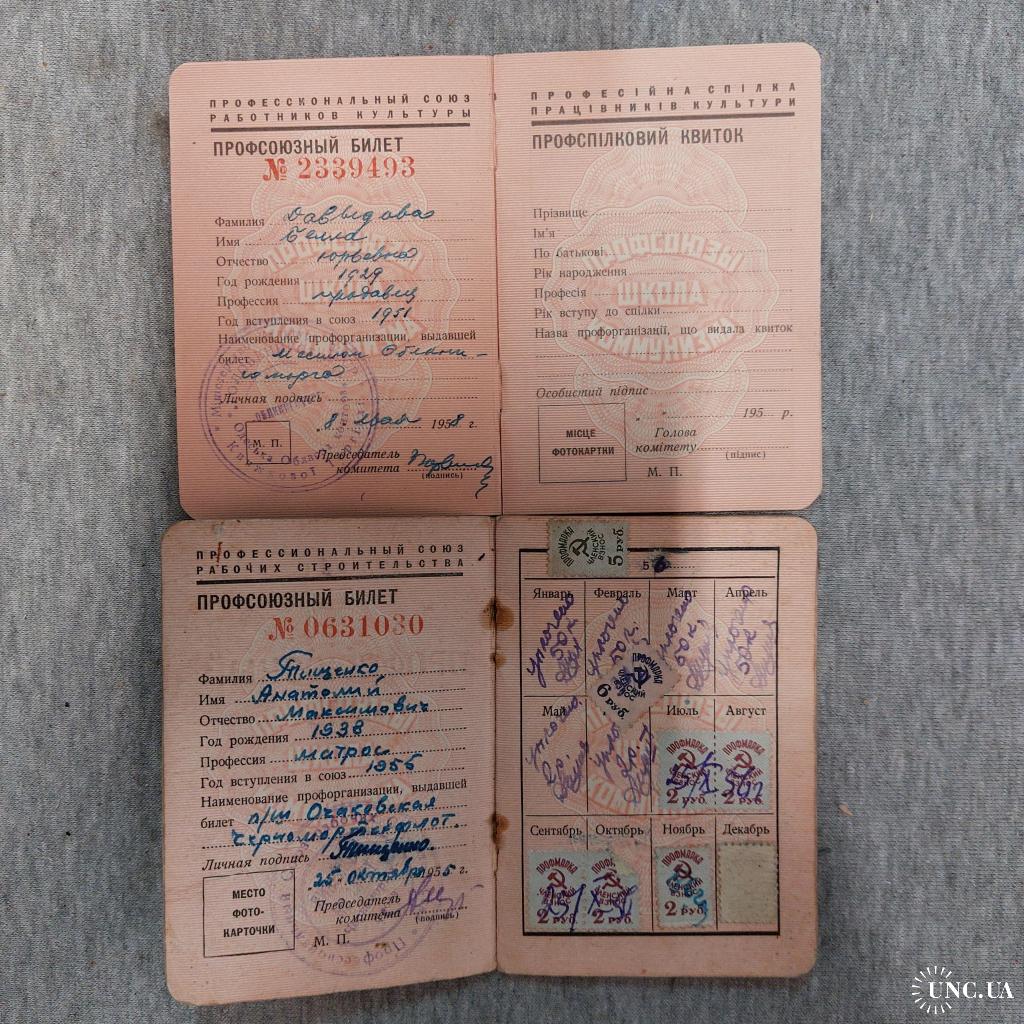 ПРОФЕССИОНАЛЬНЫЙ СОЮЗ
РАБОТНИКОВ КУЛЬТУРЫ
ПРОФСОЮЗНЫЙ БИЛЕТ
№ 2339493
Фамилия Давыдова
Имя Белла
Отчество Юрьевна
Год рождения 1929
Профессия продавец
Год вступления в союз 1951
Наименование профорганизации, выдавшей
билет Местком Облкни-
готорга
Личная подпись
8 мая 1958 г.
М. П.
Председатель
комитета
(подпись)
ПРОФЕСІЙНА СПІЛКА
ПРАЦІВНИКІВ КУЛЬТУРИ
ПРОФСПІЛКОВИЙ КВИТОК
Прізвище
Ім'я
По батькові
Рік народження
Професія
Рік вступу до спілки
Назва профорганізації, що видала квиток
Особистий підпис
195 р.
МІСЦЕ
ФОТОКАРТКИ
Голова
комітету
(підпис)
М. П.
ПРОФСОЮЗЫ
ШКОЛА
КОММУНИЗМА
ПРОФЕССИОНАЛЬНЫЙ СОЮЗ
РАБОЧИХ СТРОИТЕЛЬСТВА
ПРОФСОЮЗНЫЙ БИЛЕТ
№ 0631030
Фамилия Тищенко
Имя Анатолий
Отчество Максимович
Год рождения 1938
Профессия матрос
Год вступления в союз 1955
Наименование профорганизации, выдавшей
билет п/ш Очаковская
Черномортехфлот.
Личная подпись Тищенко
25 октября 1955 г.
МЕСТО
ФОТО-
КАРТОЧКИ
Председатель
комитета
(подпись)
М. П.
ПРОФМАРКА
ЧЛЕНСКИЙ
ВЗНОС
5 руб.
56
Январь Февраль Март Апрель
уплочено уплочено уплочено уплочено
50 к 50 к. 50 к. 50 к
ПРОФМАРКА
ЧЛЕНСКИЙ
ВЗНОС
6 руб.
Май Июль Август
уплочено
ПРОФМАРКА ПРОФМАРКА
2 руб. 2 руб.
Сентябрь Октябрь Ноябрь Декабрь
ПРОФМАРКА ПРОФМАРКА ПРОФМАРКА
ЧЛЕНСКИЙ ЧЛЕНСКИЙ ЧЛЕНСКИЙ
2 руб. 2 руб. 2 руб.
UNC.UA